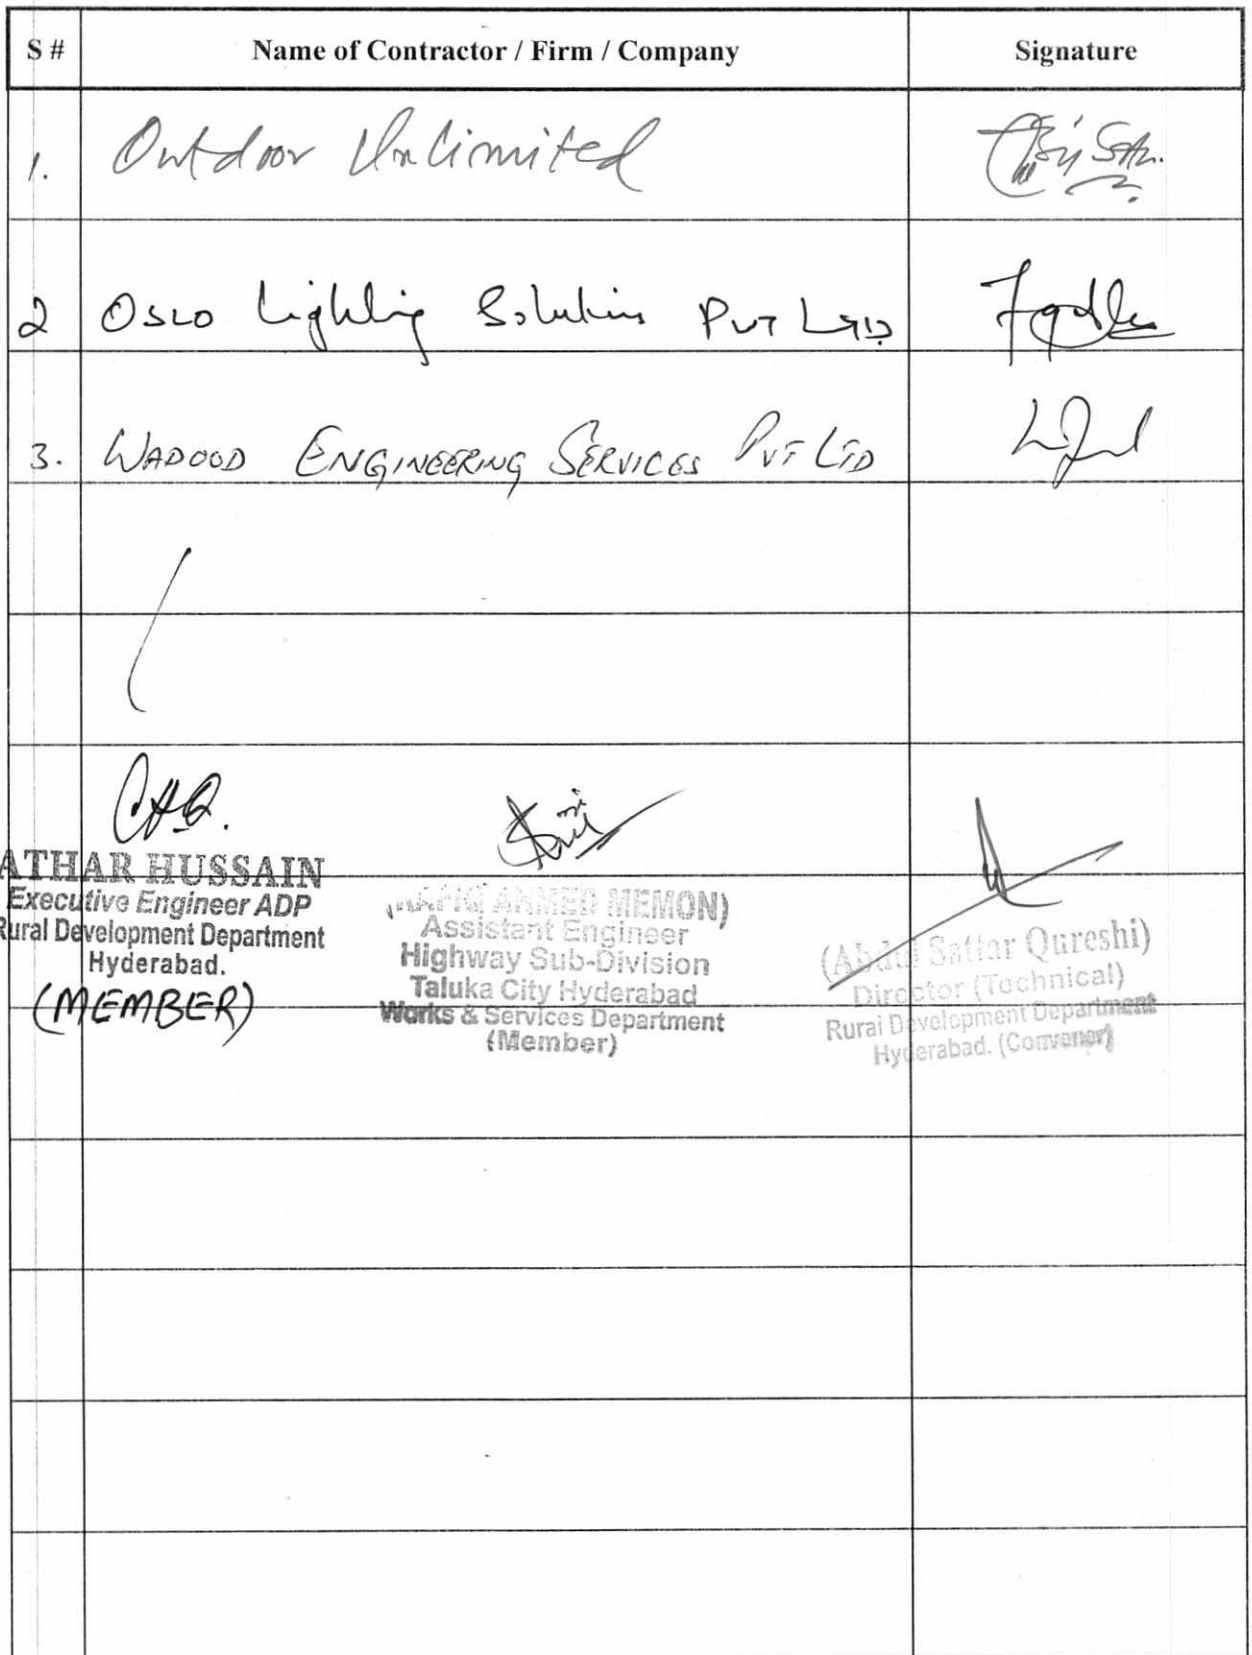 S # Name of Contractor / Firm / Company Signature
1. Outdoor Unlimited
2 Oslo Lighting Solutions Pvt LTD
3. WADOOD ENGINEERING SERVICES PVT LTD
ATHAR HUSSAIN
Executive Engineer ADP
Rural Development Department
Hyderabad.
(MEMBER)
AHMED MEMON)
Assistant Engineer
Highway Sub-Division
Taluka City Hyderabad
Works & Services Department
(Member)
(Abdul Sattar Qureshi)
Director (Technical)
Rural Development Department
Hyderabad. (Convenor)